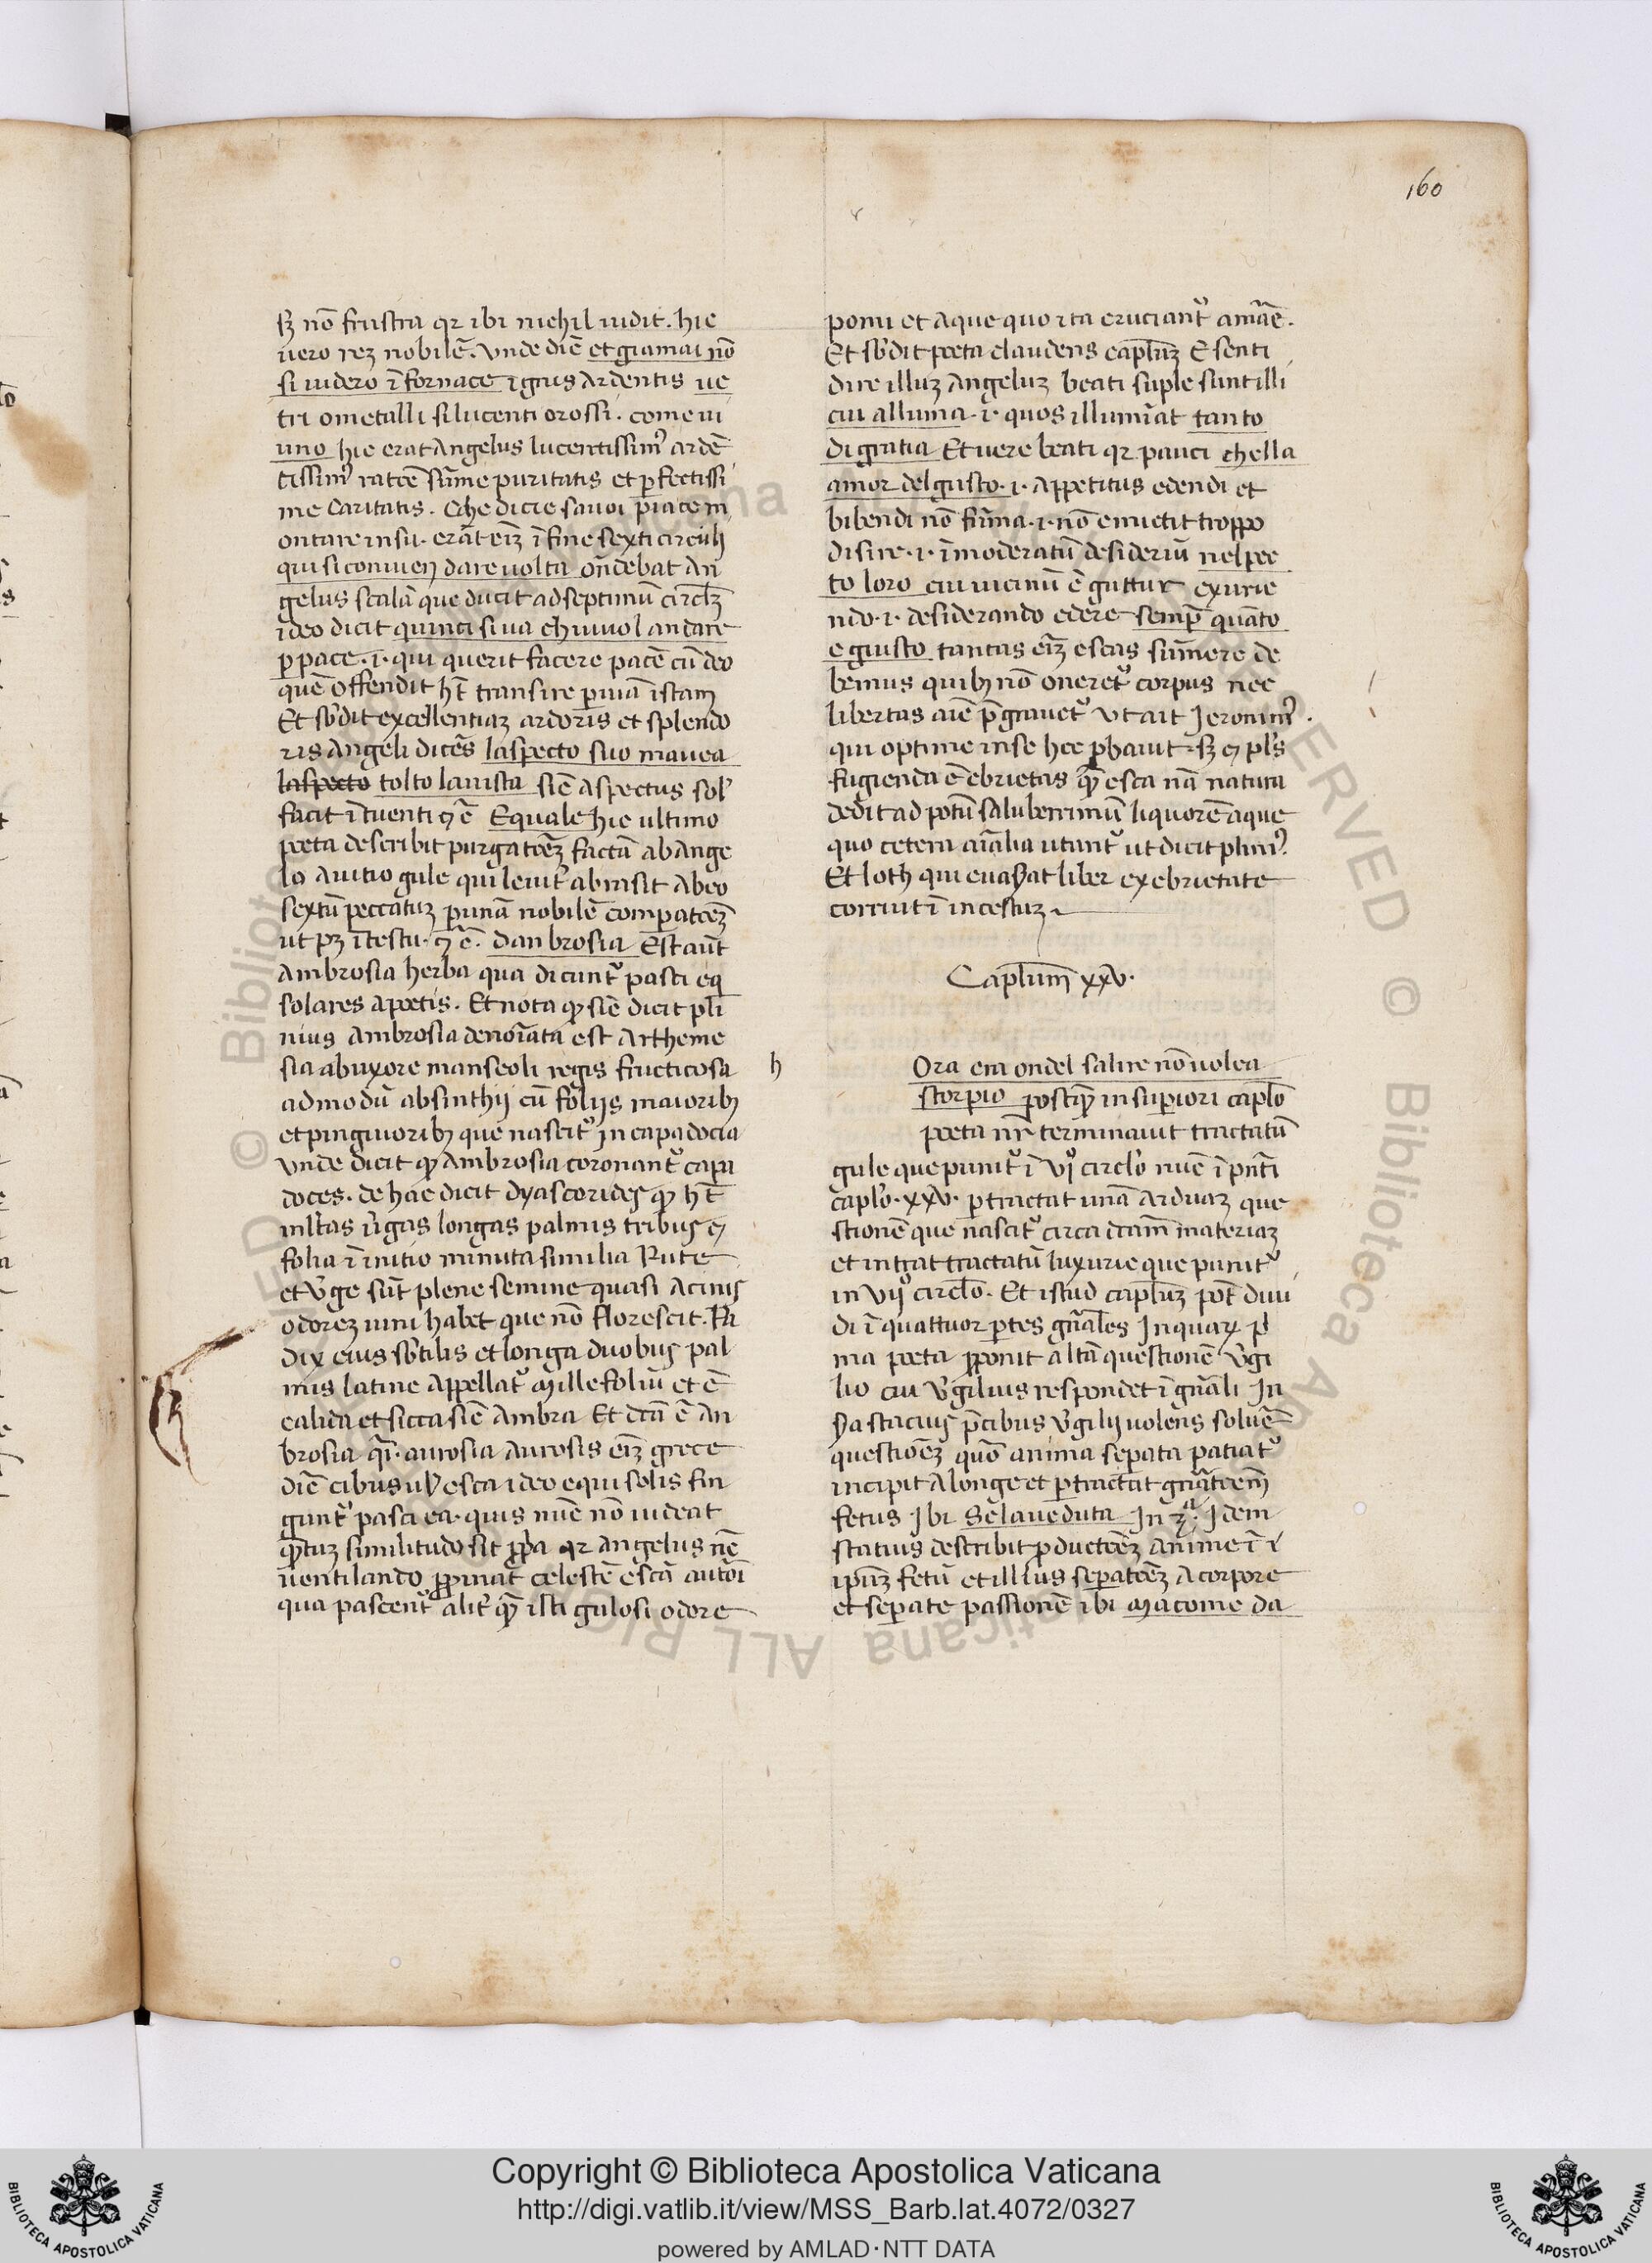 160
sꝫ nō frustra qꝛ ibi niehil uidit. hic
uero rez nobilē. vnde dic̄ et giamai nō
si uidero ī fornace ignis ardentis ue
tri o metalli si lucenti o rossi. come ui
uno hic erat Angelus lucentissimꝰ ardē
tissimꝰ rat̄ce sūme puritatis et perfectissi
me Caritatis. Che dicie sauoi piace m
ontare in su. erāt eīz ī fine sexti circuli
qui si conuien dare uolta ōndebat An
gelus scalā que ducit ad septimū circl̄z
ideo dicit quinci si ua chi uuol andare
ꝑ pace .i. qui querit facere pacē cū deo
quē offendit ħt transire ꝑ uiā istam
Et sb̄dit excellentiaz ardoris et splendo
ris Angeli dicēs laspecto suo mauea
laspecto tolto la uista sic̄ aspectus solꝰ
facit ītuenti ꝯ ē Equale hic ultimo
poeta describit purgatōez factā ab Ange
lo a uitio gule qui leuitꝰ abrasit ab eo
sextū peccatuz ꝑ unā nobilē comꝑatōez
ut pꝫ ī testu. ꝯ ē. dan brosia Est aūt
Ambrosia herba qua dicuntꝰ pasci eq̄
solares a poetis. Et nota ꝙ sic̄ dicit pli
nius Ambrosia denoiāta est Artheme
sia ab uxore manseoli regis fructicosa
ad modū absinthij cū folijs maioribꝫ
et pinguioribꝫ que nascitꝰ in capadocia
vnde dicit ꝙ Ambrosia coronantꝰ capa
doces. de hac dicit dyascorides ꝙ ħt
mltas ūgas longas palmis tribus ꝯ
folia ī initio minuta similia Rute
et v̄ge sūt plene semine quasi acinis
odorez uini habet que nō florescit. Ra
dix eius sb̄tilis et longa duobus pal
mis latine appellatꝰ millefoliū et ē
calida et sicca sic̄ Ambra Et dc̄a ē An
brosia qi. aurosia aurosis eīz grece
dic̄ cibus ul̄ esca ideo equi solis fin
guntꝰ pasci ea. quis nūc nō uideat
quātuz similitudo sit ꝓpa qꝛ Angelus nē
uentilando ꝓpinat celestē escā autōi
qua pascentꝰ alitꝰ quā isti gulosi odore
h
pomi et aque quo ita cruciantꝰ amāē.
Et sb̄dit poeta claudens capl̄uz E senti
dire illuz Angeluz beati suple sunt illi
cui alluma .i. quos illumīat tanto
di gratia Et uere beati qꝛ pauci chella
amor del gusto .i. appetitus edendi et
bibendi nō fūma .i. nō emictit troppo
disire .i. īmoderatū desideriū nel pec
to loro cui uicinū ē guttur exurie
ndo .i. desiderando edere semp̄ quāto
e giusto tantas eīz escas sūmere de
bemus quibꝫ nō oneretꝰ corpus nec
libertas aīe p̄grauetꝰ vt ait Jeronimꝰ.
qui optime in se hec ꝓbauit. sꝫ ꝯ pl̄s
fugienda ē ebrietas quā esca nā natura
dedit ad potū saluberrimū liquorē aque
quo cetera aīalia utuntꝰ ut dicit plinꝰ.
Et loth qui euaserat liber ex ebrietate
corruit ī incestuz
Capl̄um xxv.
Ora era ondel salire nō uolea
storpio postquā in suꝑiori caplō
poeta nr̄ terminauit tractatū
gule que punitꝰ ī vjͦ circlo nūc ī pn̄ti
caplo .xxv. ꝑtractat unā arduaz que
stionē que nascitꝰ circa dc̄am materiaz
et intrat tractatū luxurie que punitꝰ
in vijͦ circlō. Et istud capl̄uz pōt diui
di ī quattuor ꝑtes gn̄ales In quaꝝ pͥ
ma poeta ꝓponit altā questionē v̄gi
lio cui v̄gilius respondet ī gn̄ali In
2a stacius p̄cibus v̄gilij uolens soluē
questioēz quō anima seꝑata patiatꝰ
incipit a longe et ꝑtractat gn̄atōem
fetus ibi Se la ueduta In 3ᵃ. Idem
statius describit ꝓductōez anime ī i
ipūz fetū et illius seꝑatōez a corpore
et seꝑate passionē ibi ma come da
Copyright © Biblioteca Apostolica Vaticana
http://digi.vatlib.it/view/MSS_Barb.lat.4072/0327
powered by AMLAD·NTT DATA